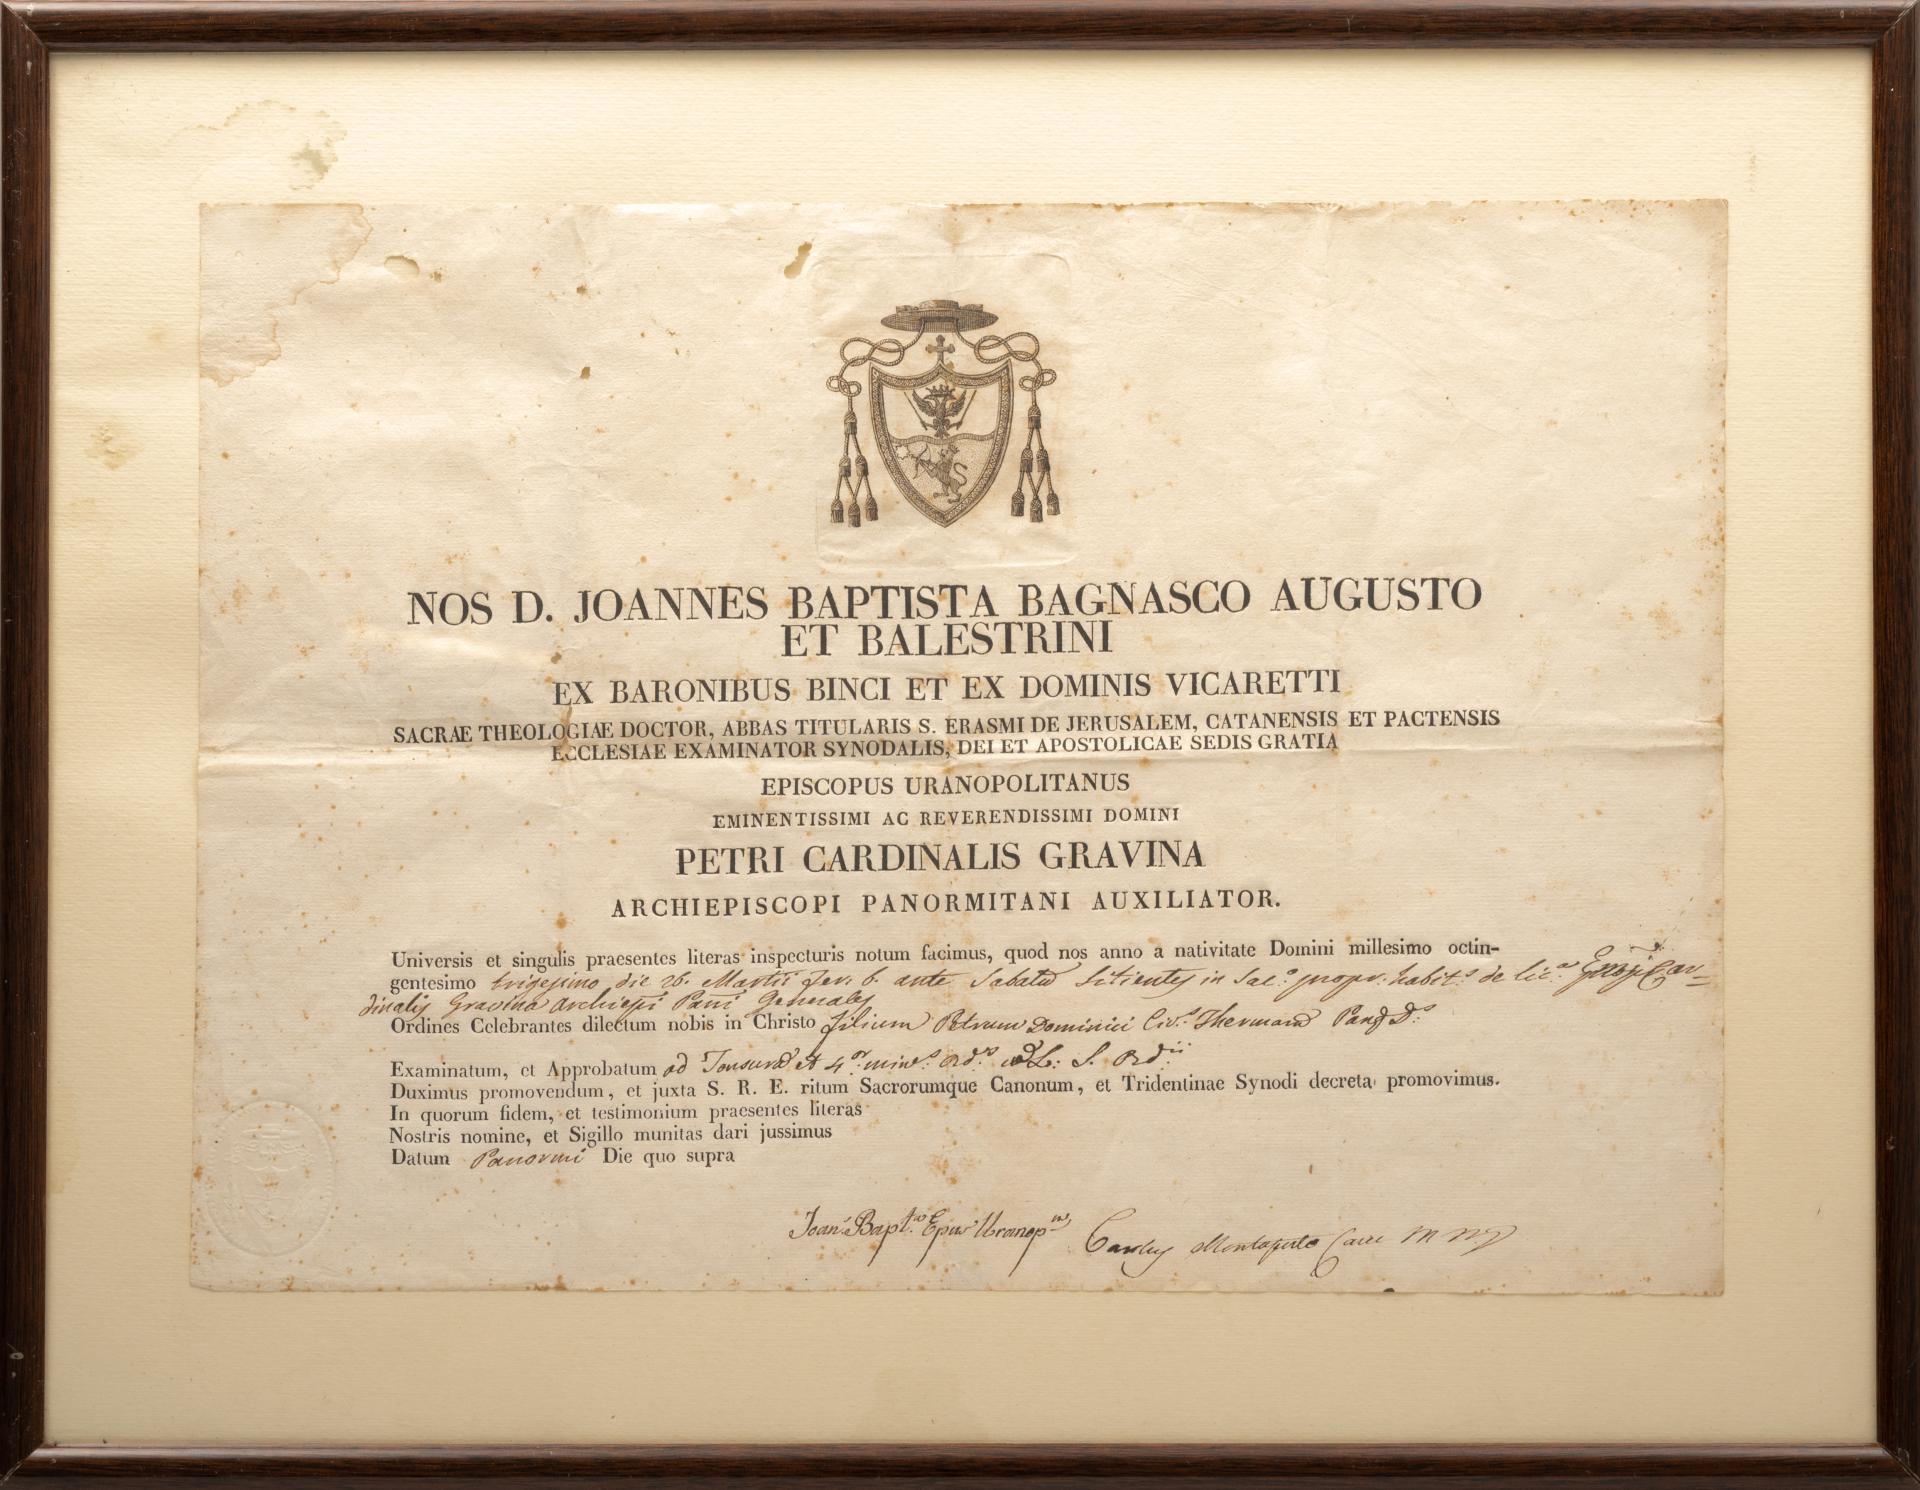 NOS D. JOANNES BAPTISTA BAGNASCO AUGUSTO
ET BALESTRINI
EX BARONIBUS BINCI ET EX DOMINIS VICARETTI
SACRÆ THEOLOGIÆ DOCTOR, ABBAS TITULARIS S. ERASMI DE JERUSALEM, CATANENSIS ET PACTENSIS
ECCLESIAE EXAMINATOR SYNODALIS, DEI ET APOSTOLICAE SEDIS GRATIA
EPISCOPUS URANOPOLITANUS
EMINENTISSIMI AC REVERENDISSIMI DOMINI
PETRI CARDINALIS GRAVINA
ARCHIEPISCOPI PANORMITANI AUXILIATOR.
Universis et singulis praesentes literas inspecturis notum facimus, quod nos anno a nativitate Domini millesimo octin-
gentesimo trigesimo die 26. Martii fer. 6. ante Sabatū Sitientes in Sac.º propr. habit.s de lic.a Car-
dinalis Gravina Generales
Ordines Celebrantes dilectum nobis in Christo filium Petrum Dominici Civ.s
Examinatum, et Approbatum ad et 4.or min.s Ord.s
Duximus promovendum, et juxta S. R. E. ritum Sacrorumque Canonum, et Tridentinae Synodi decreta promovimus.
In quorum fidem, et testimonium praesentes literas
Nostris nomine, et Sigillo munitas dari jussimus
Datum Panormi Die quo supra
Joan. Bapt.a Epus Uranop.nus